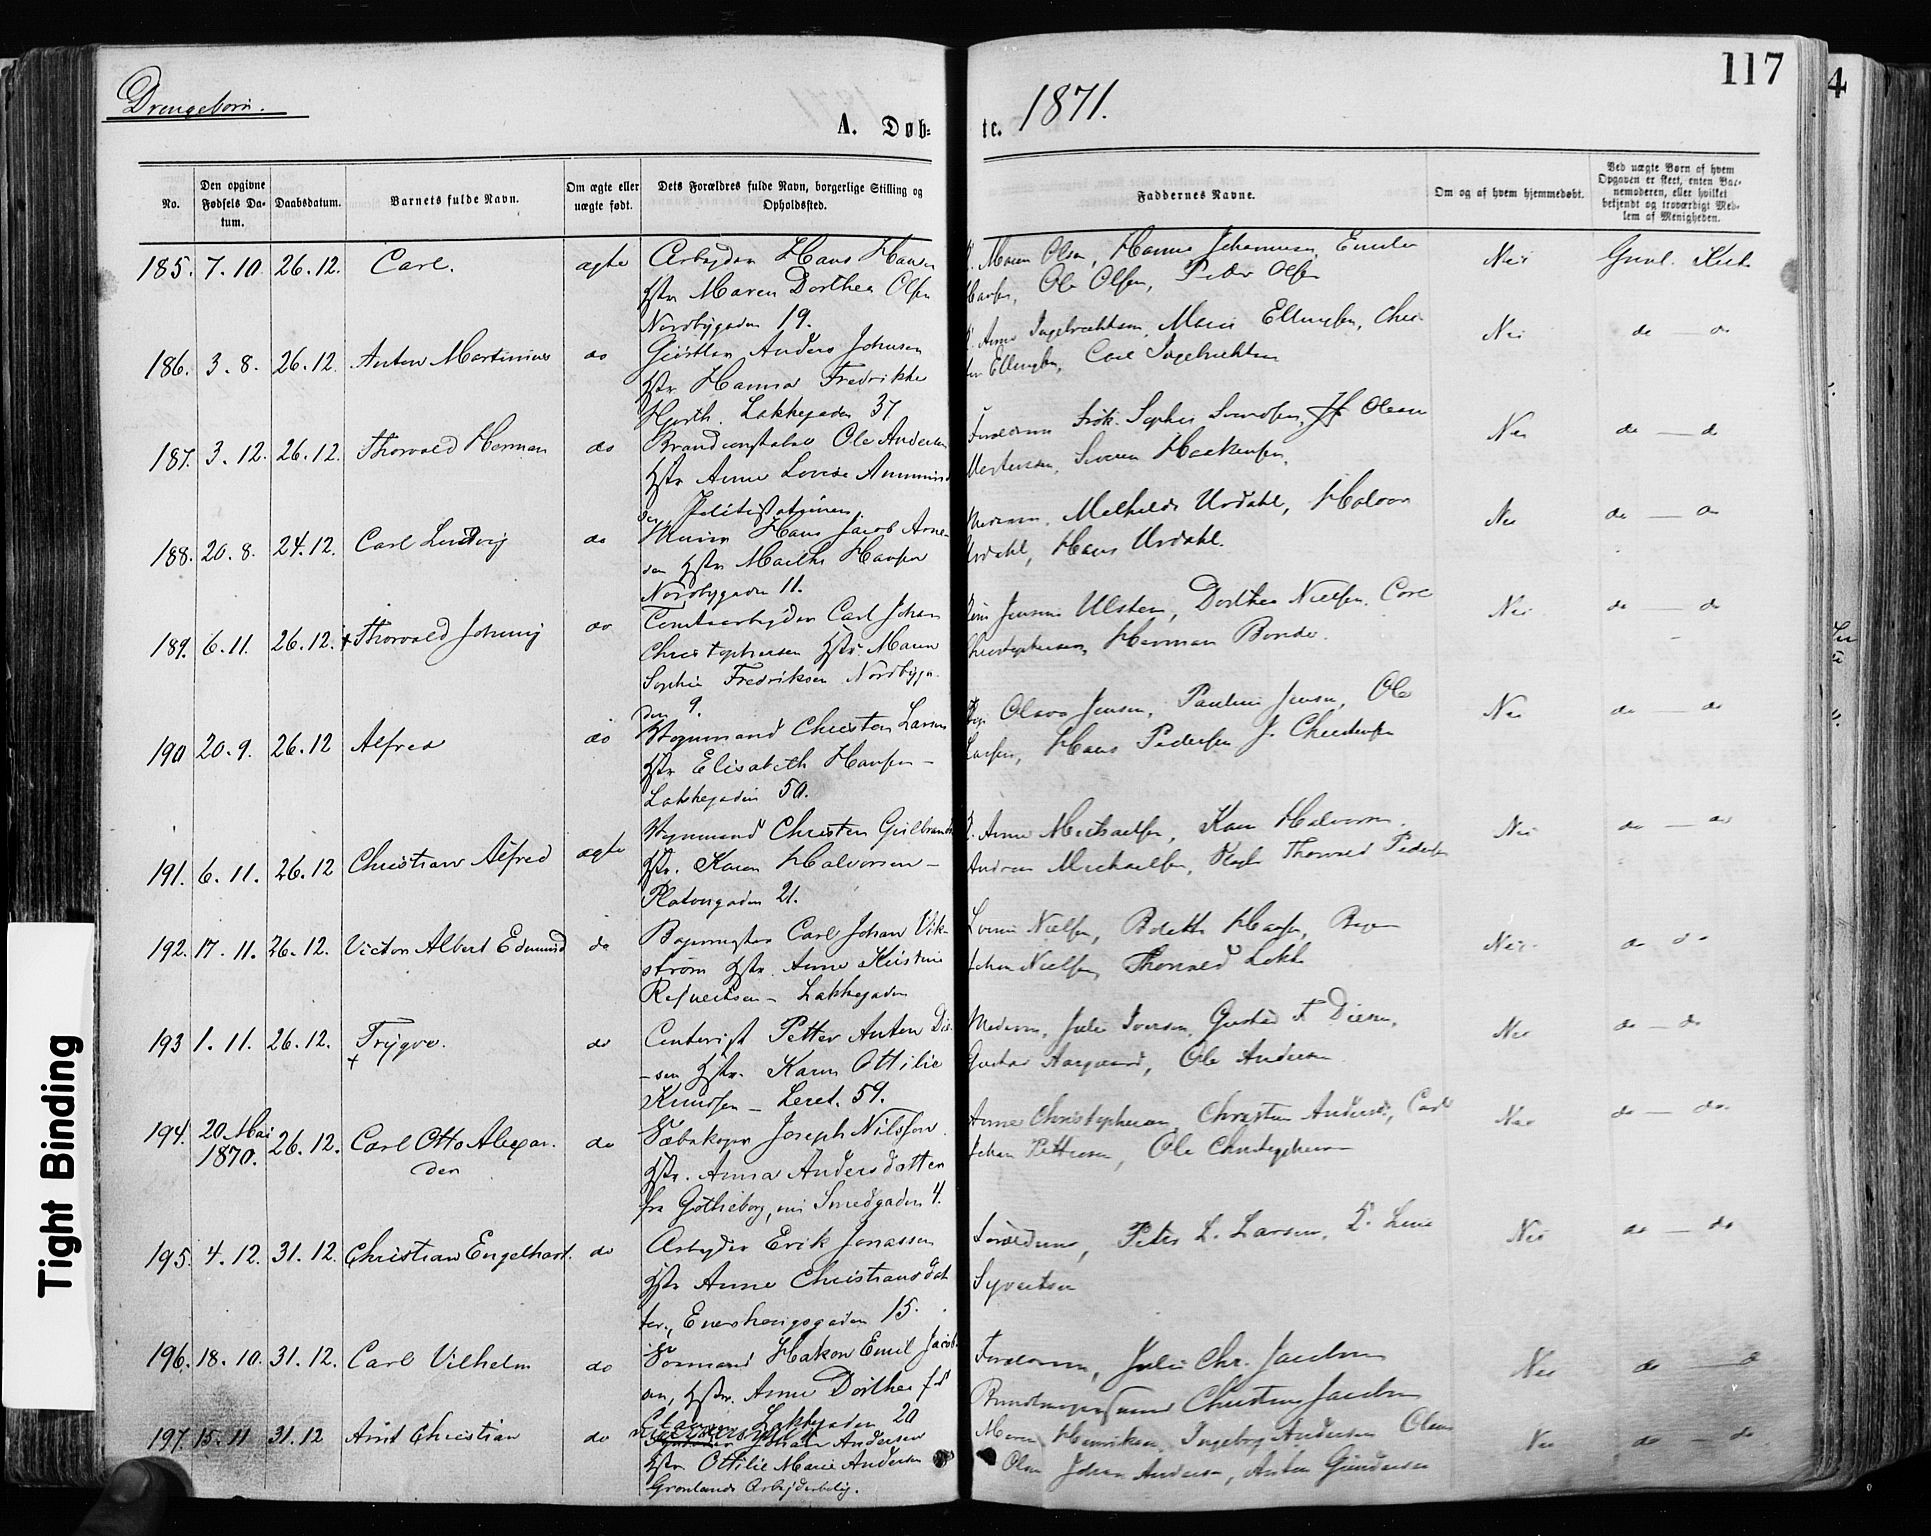 117
4
Drengebørn.
1871.
A. Døb-
te.
No.
Den opgivne Fødsels Da-tum.
Daabsdatum.
Barnets fulde Navn.
Om ægte eller uægte født.
Dets Forældres fulde Navn, borgerlige Stilling og Opholdssted.
Faddernes Navne.
Om og af hvem hjemmedøbt.
Ved uægte Børn af hvem Opgaven er skeet, enten Bar-nemoderen, eller hvilket bekjendt og troværdigt Med-lem af Menigheden.
185. 7.10. 26.12. Carl. ægte Arbeyder Hans Hansen
Hstr Maren Dorthea Olsen
Nordbygaden 19.
Maren Olsen, Hanna Johannesen, Emilie
Hansen, Ole Olsen, Peder Olsen
Nei
186. 3.8. 26.12. Anton Martinius do Anders Johnsen
Hstr Hanna Fredrikke
Hjorth. Lakkegaden 37
Anne Ingebrethsen, Marie Ellingsen, Chri-
Ellingsen, Carl Ingebrethsen
Nei do — do
187. 3.12. 26.12. Thorvald Herman do Brandconstabel Ole Andersen
Hstr Anne Lovise Ammund
sen, Politistationen
Forældrene Frøk. Sophie Svendsen, Olsen
Mortensen, Haakensen.
Nei do — do
188. 20.8. 24.12. Carl Ludvig do Murer Hans Jacob Arne-
sen Hstr Mathe Hansen
Nordbygaden 11.
Mathilde Urdahl, Halvor
Urdahl, Hans Urdahl.
Nei do — do
189. 6.11. 26.12. + Thorvald Johnny do Tomtearbeyder Carl Johan
Christophersen Hstr Maren
Sophie Fredriksen Nordbyga-
den 9.
Ulsten, Dorthea Nielsen, Carl
Christophersen, Herman Bonde.
Nei do — do
190 20.9. 26.12 Alfred do Vognmand Christen Larsen
Hstr Elisabeth Hansen —
Lakkegaden 50.
Olava Jensen, Pauline Jensen, Ole
Larsen, Hans Pedersen J. Christensen
Nei do — do
191. 6.11. 26.12 Christian Alfred ægte Vognmand Christen Gulbrands
Hstr. Karen Halvorsen —
Platousgaden 21.
Anne Michaelsen, Karen Halvorsen.
Andreas Michaelsen, Thorvald Pedersen
Nei do — do
192. 17.11. 26.12. Victor Albert Edmund do Bogermester Carl Johan Vik-
strøm Hstr. Anne Kristine
— Lakkegaden
Lovise Nielsen, Bolette Hansen,
Johan Nielsen, Thorvald Lokke
Nei do do
193 1.11. 26.12. Trygve. + do Contorist Petter Anton Die-
sen Hstr. Karen Ottilie
Knudsen — Leret. 59.
Moderen, Julie Iversen, Gustav F Diesen,
Gustav Aargaard, Ole Andersen
Nei do — do
194. 20 Mai 1870. 26.12. Carl Otto Alexan-
der do Sæbekoger Joseph Nilsson
Hstr. Anna Andersdatter
fra Gøtheborg, nu Smedgaden 4.
Anne Christophersen, Christian Anders, Carl
Johan Pettersen, Ole Christophersen
Nei do — do.
195. 4.12. 31.12. Christian Engelhart. do Arbeyder Erik Jonassen
Hstr Anne Christiansdat
ter, Enerhougsgaden 15.
Forældrene, Peter L. Larsen, Lene
Syvertsen
Nei do — do
196. 18.10. 31.12. Carl Vilhelm do Sømand Hakon Emil Jacob
sen, Hstr. Anne Dorthea fd
Clausen Lakkegaden 20
Forældrene, Julie Chr. Jacobsen
Christine Jacobsen
Nei do — do
197. 15.11 31.12 Arnt Christian do Johan Andersen
Hstr Ottilie Marie Andersen
Grønlands Arbejderbolig.
Maren Henriksen, Ingeborg Andersen Olava
Olsen Johan Andersen, Anton Gundersen
Nei do — do
Tight Binding